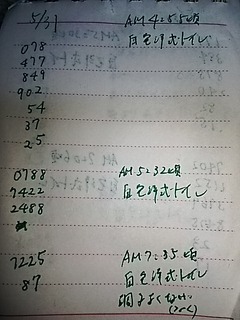 5/31 AM4:55頃
078 白色洋式トイレ
477
849
902
54
37
25
0788 AM5:32頃
7422 白色洋式トイレ
2488
7225 AM7:35頃
87 白色洋式トイレ